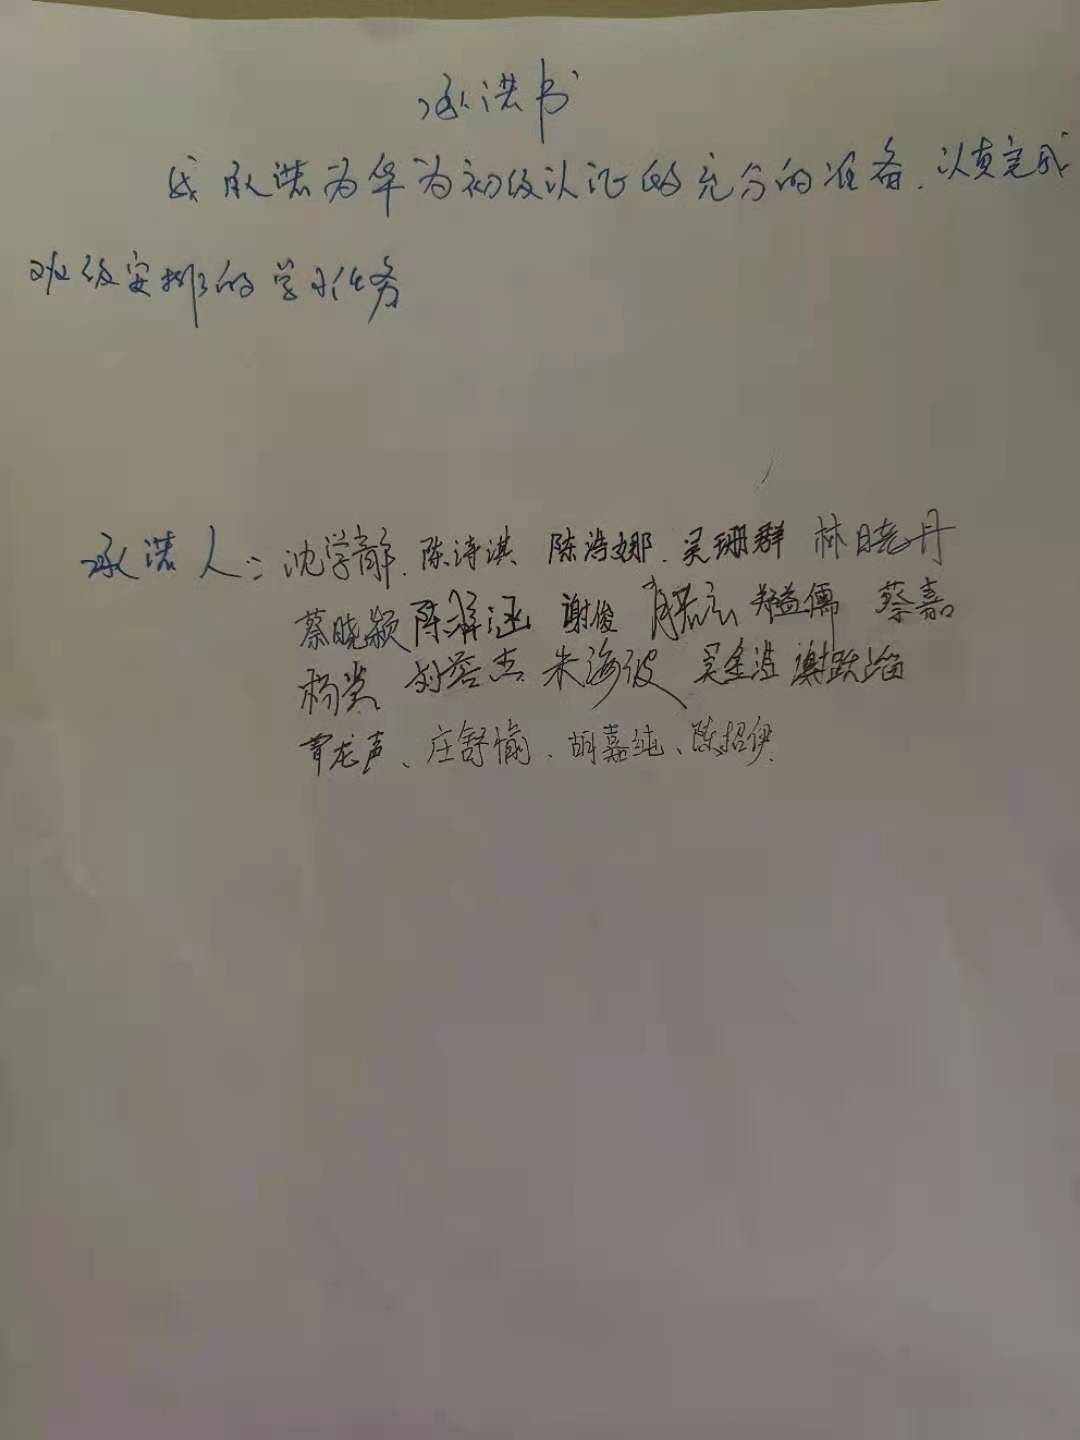 承诺书
我承诺为华为初级认证的充分的准备，认真完成
班级安排的学习任务
承诺人：沈学静、陈诗淇 陈浩娜、吴珊群 林晓丹
蔡晓颖 陈泽涵 谢俊 郑益儒 蔡嘉
杨 刘容杰 朱海波 吴金洁 谢跃
曹龙声、庄舒愉、胡嘉纯、陈招伊